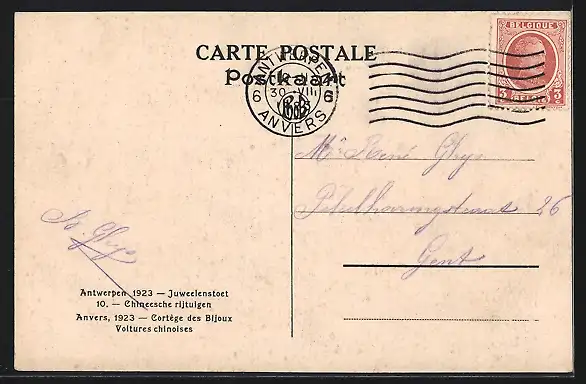 CARTE POSTALE
Postkaart
ANTWERPEN
30 VIII
6 6
ANVERS
BELGIQUE
3c 3c
BELGIË
Mr René Ghys
26
Gent
Ghys
Antwerpen, 1923 — Juweelenstoet
10. — Chineesche rijtuigen
Anvers, 1923 — Cortège des Bijoux
Voitures chinoises